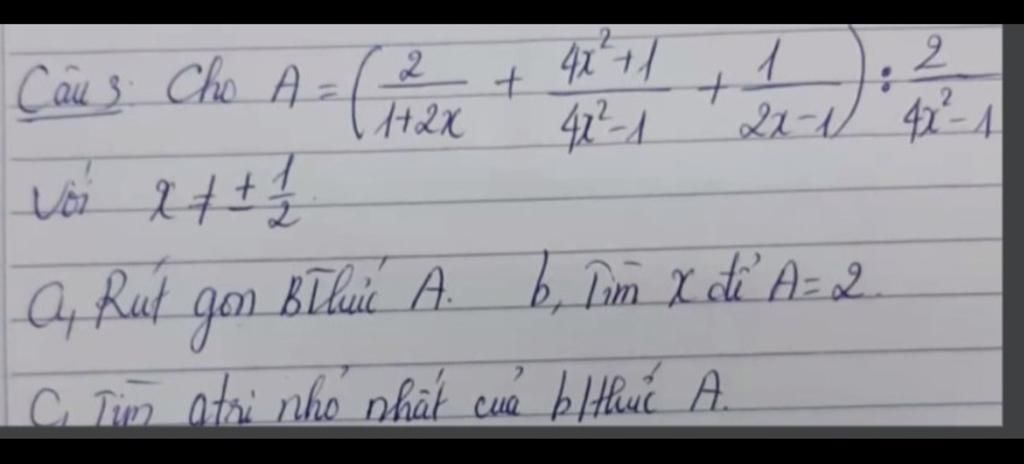 Câu 3: Cho A = (2/(1+2x) + (4x²+1)/(4x²-1) + 1/(2x-1)) : 2/(4x²-1)
Với x ≠ ± 1/2.
a, Rút gọn BThức A. b, Tìm x để A = 2.
C, Tìm gtri nhỏ nhất của b/thức A.